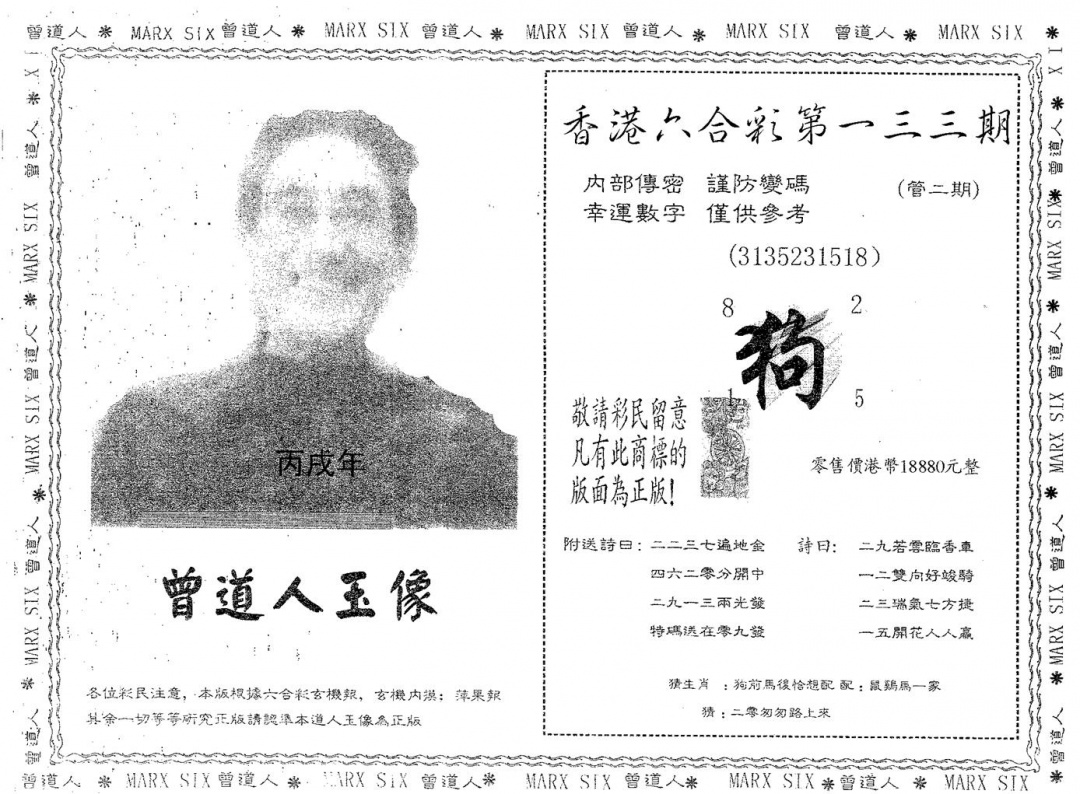 曾道人 ＊ MARX SIX 曾道人 ＊ MARX SIX 曾道人 ＊ MARX SIX 曾道人 ＊ MARX SIX 曾道人 ＊ MARX SIX ＊
丙戌年
曾道人玉像
各位彩民注意，本版根據六合彩玄機報，玄機內摸：蘋果報
其余一切等等研究正版請認準本道人玉像為正版
香港六合彩第一三三期
內部傳密 謹防變碼
(管二期)
幸運數字 僅供參考
(3135231518)
8 2
狗
1 5
敬請彩民留意
凡有此商標的
版面為正版!
零售價港幣18880元整
附送詩曰：二二三七遍地金
四六二零分開中
二九一三兩光發
特碼送在零九發
詩曰：二九若雲臨香車
一二雙向好竣騎
二三瑞氣七方捷
一五開花人人贏
猜生肖 ：狗前馬後恰想配 配：鼠鷄馬一家
猜：二零匆匆路上來
曾道人 ＊ MARX SIX 曾道人 ＊ MARX SIX 曾道人＊ MARX SIX 曾道人＊ MARX SIX ＊曾道人 ＊ MARX SIX